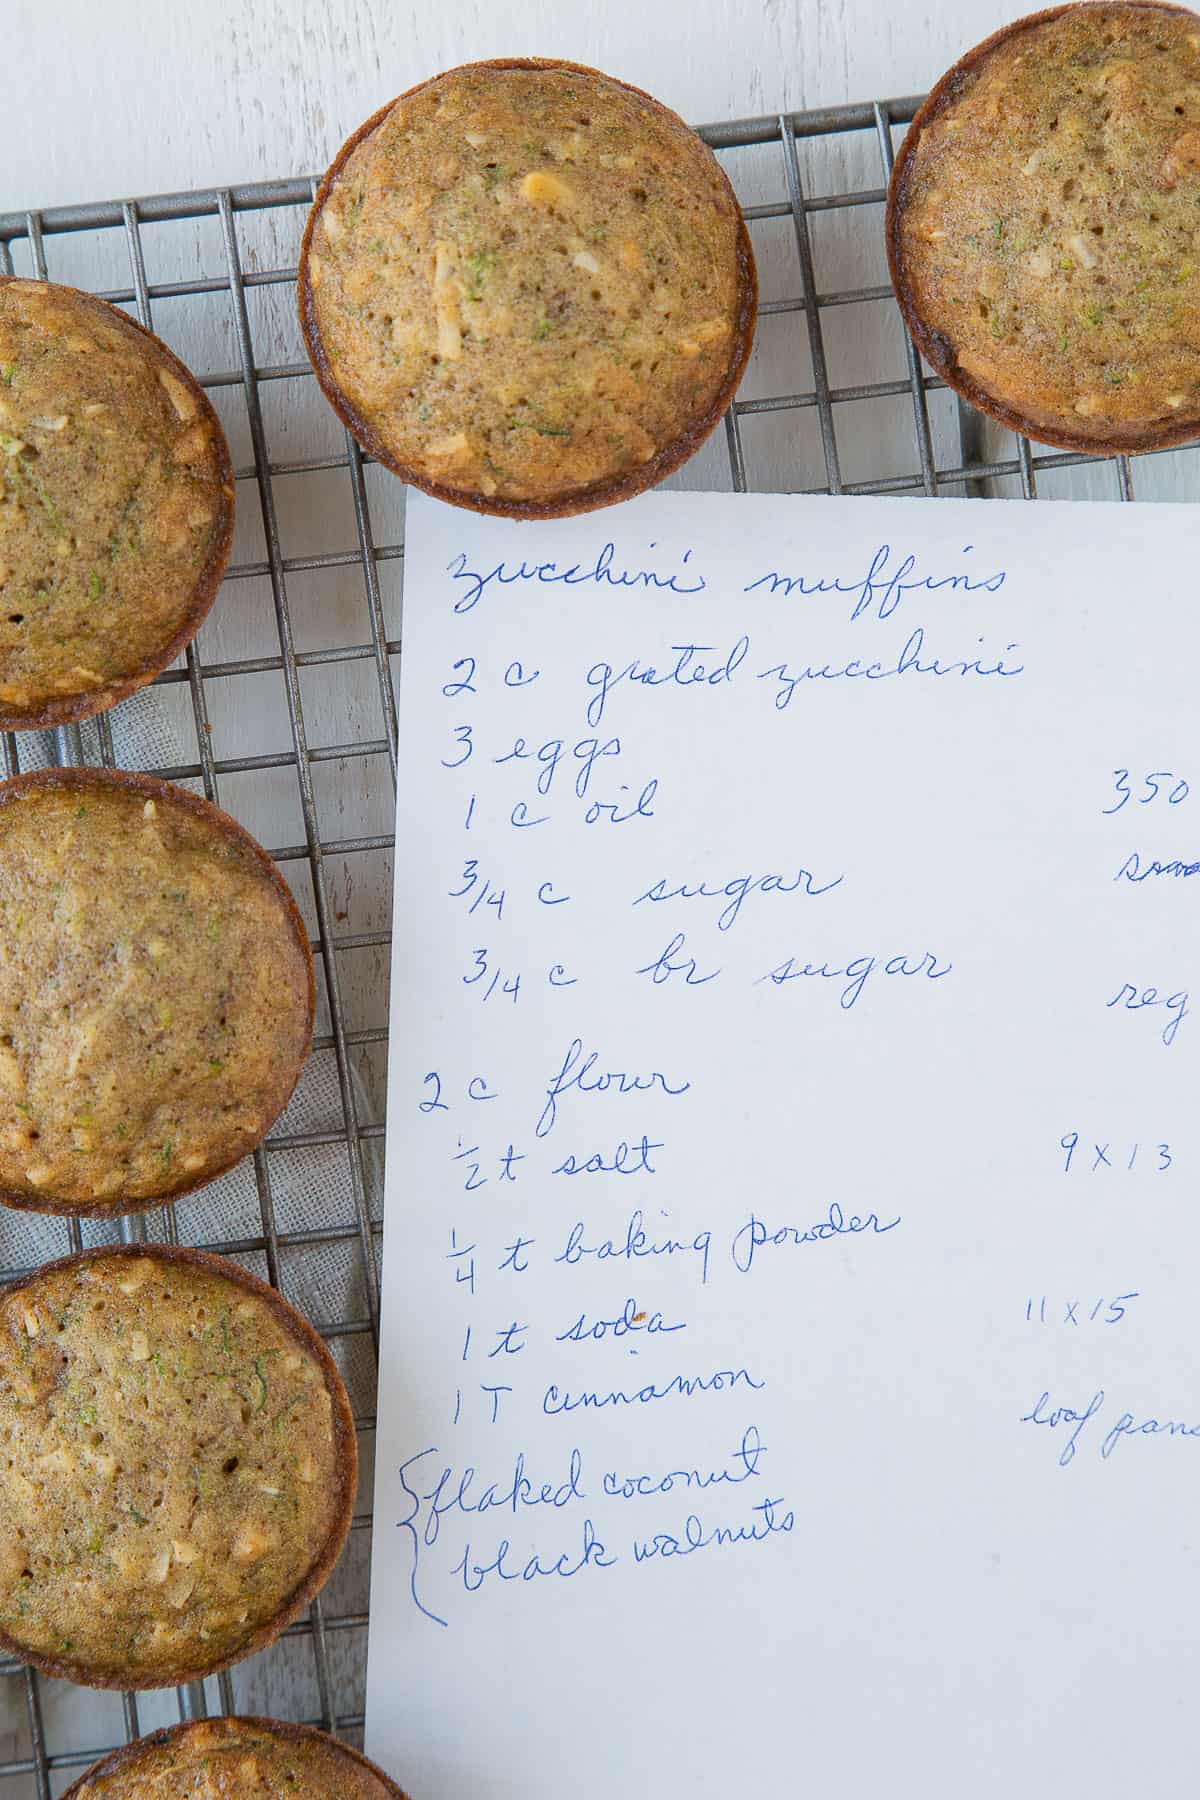 zucchini muffins
2 c grated zucchini
3 eggs
1 c oil
3/4 c sugar
3/4 c br sugar
2 c flour
1/2 t salt
1/4 t baking powder
1 t soda
1 T cinnamon
{ flaked coconut
black walnuts
350
reg
9 x 13
11 x 15
loaf pans